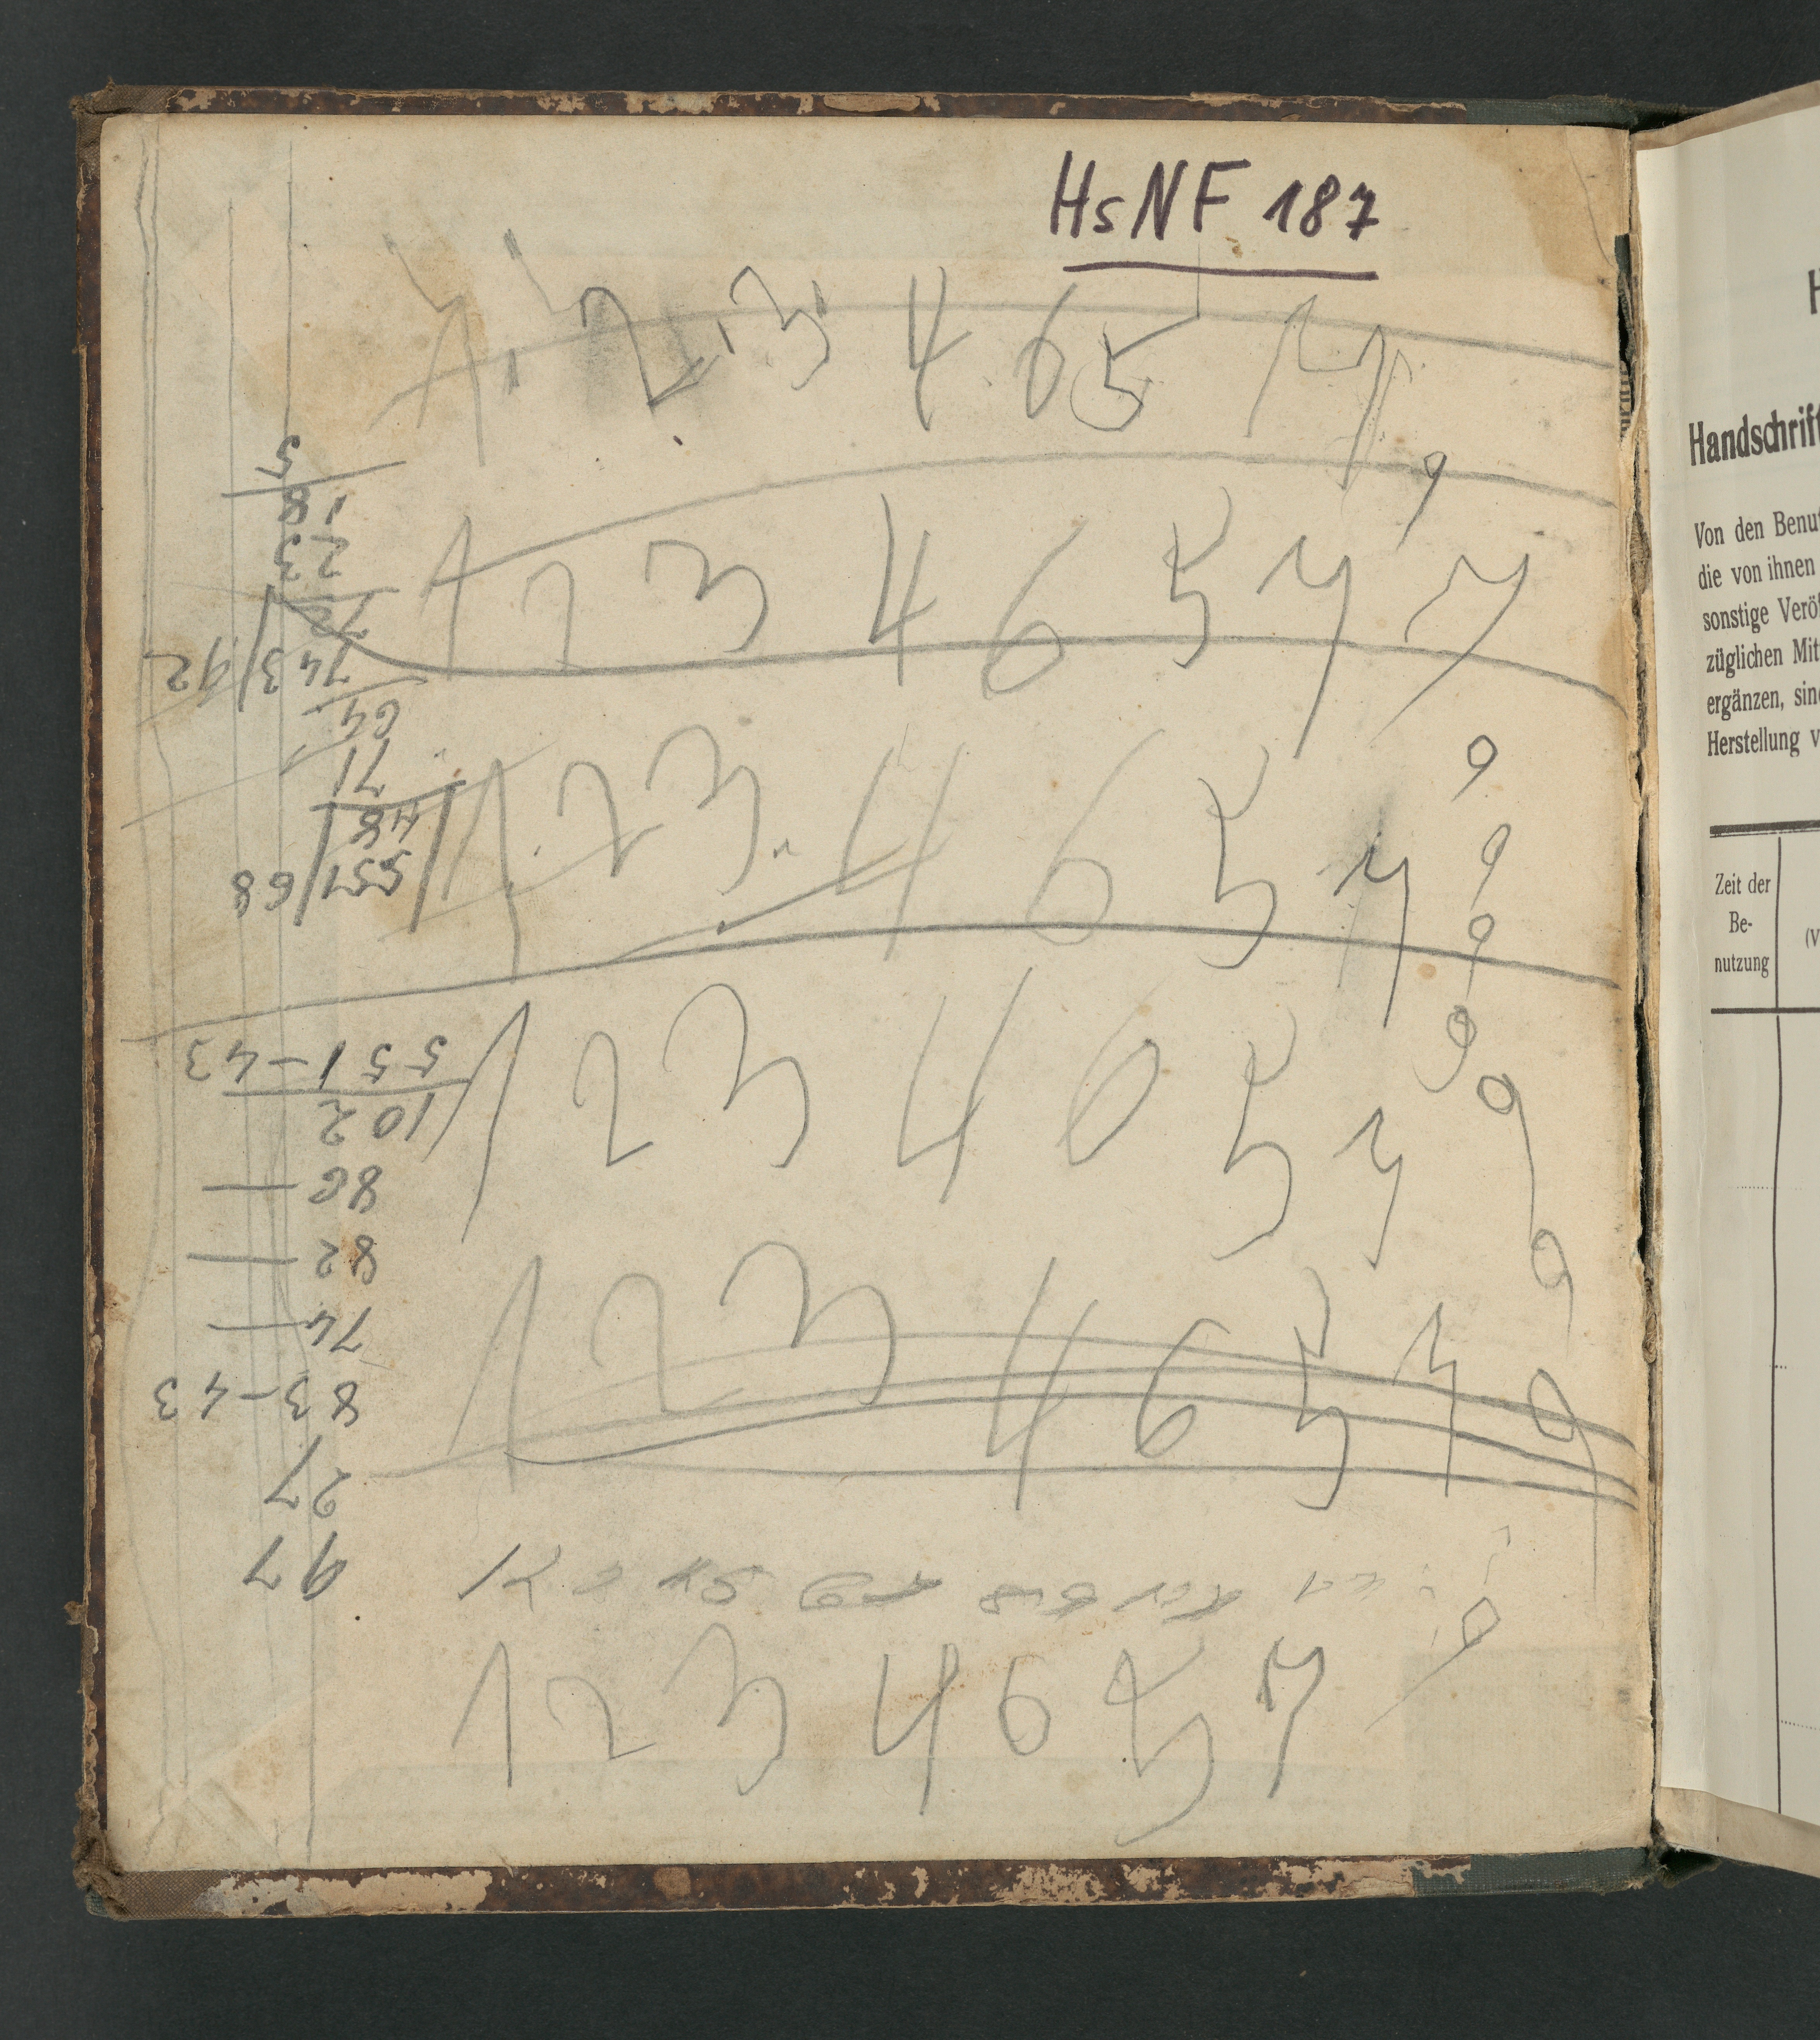 HsNF 187
1 2 3 4 6 5 7 7
9
1 2 3 4 6 5 7 7
9
1 2 3 4 6 5 7 9
9
9
1 2 3 4 6 5 7 9
9
1 2 3 4 6 5 7 9
1 2 3 4 6 5 7 9
97
27
83-43
74 —
82 —
86 —
102
551-43
551/68
48
71
64
743/92
72
23
18
5
H
Handschrift
Von den Benut
die von ihnen
sonstige Veröf
züglichen Mit
ergänzen, sind
Herstellung v
Zeit der
Be-
nutzung
(V